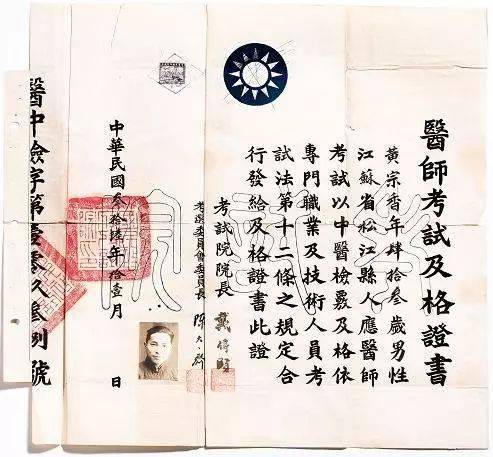 醫師考試及格證書
黃宗香年肆拾叁歲男性
江蘇省松江縣人應醫師
考試以中醫檢覈及格依
專門職業及技術人員考
試法第十二條之規定合
行發給及格證書此證
考試院院長 戴傳賢
考選委員會委員長 陳大齊
中華民國叁拾陸年拾壹月 日
醫中檢字第壹零 叁 號